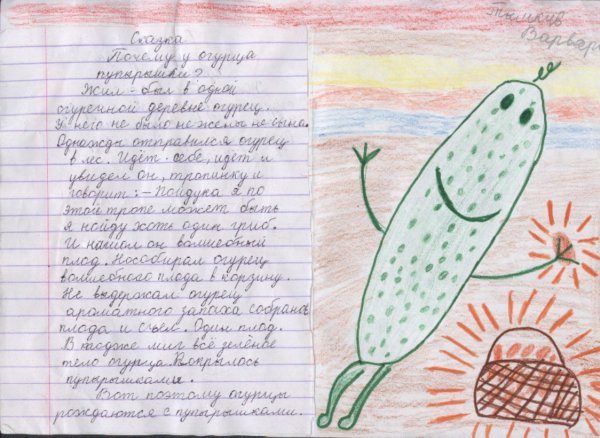 Сказка
Почему у огурца
пупырышки?
Жил-был в одной
огуречной деревне огурец.
У него не было не жены не сына.
Однажды отправился огурец
в лес. Идёт себе, идёт и
увидел он, тропинку и
говорит: - Пойдука я по
этой тропе может быть
я найду хоть один гриб.
И нашол он волшебный
плод. Нособирал огурец
волшебного плода в корзину.
Не выдержал огурец
ароматного запаха собраного
плода и съел. Один плод.
В тодже миг всё зелёное
тело огурца. Покрылось
пупырышками.
Вот поэтому огурцы
рождаются с пупырышками.
Варвара